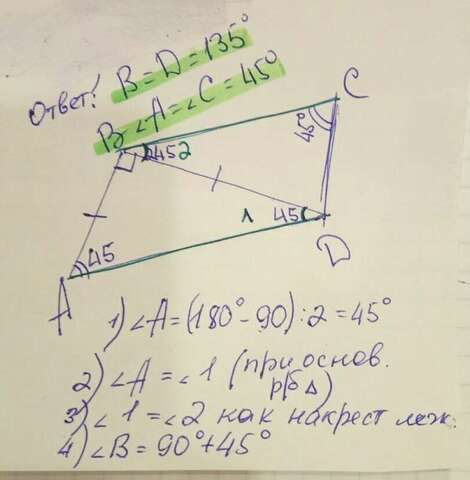 Ответ: B = D = 135°
∠A = ∠C = 45°
B
C
45°
45 2
1
45
45
D
A
1) ∠A = (180° - 90) : 2 = 45°
2) ∠A = ∠1 (при основ.
р/б Δ)
3) ∠1 = ∠2 как накрест леж.
4) ∠B = 90° + 45°